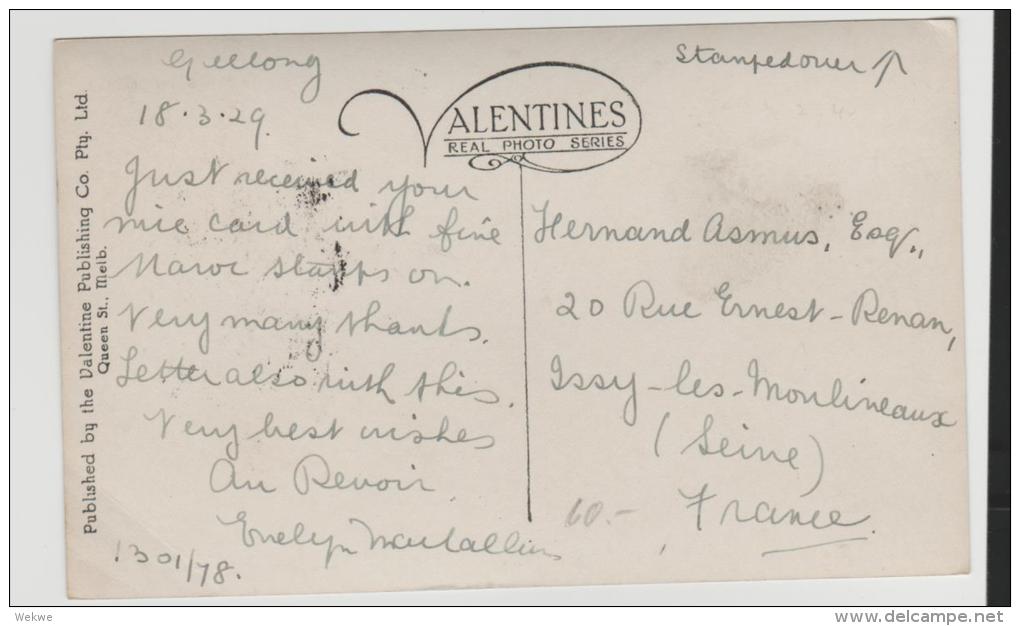 Geelong
18.3.29.
Just received your
nice card with fine
Maroc stamps on.
Very many thanks.
Letter also with this.
Very best wishes
Au Revoir.
Evelyn
1301/78.
Published by the Valentine Publishing Co. Pty. Ltd.
Queen St., Melb.
VALENTINES
REAL PHOTO SERIES
Stampedover ↗
Hernand Asmus, Esq.,
20 Rue Ernest-Renan,
Issy-les-Moulineaux
(Seine)
France.
60.-
Wekwe
delcampe.net